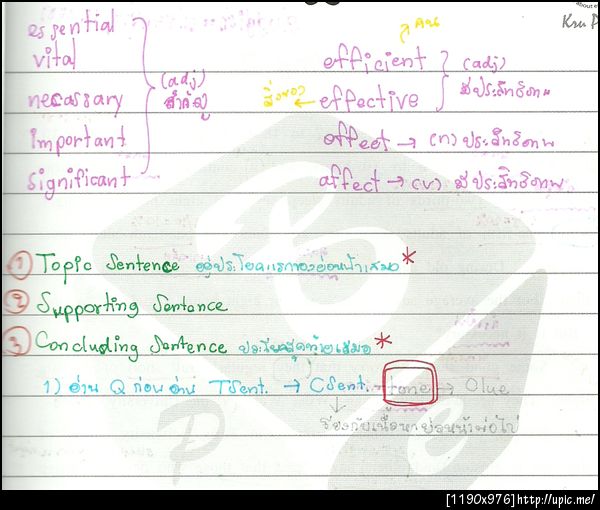 about e
Kru P
essential
คน
vital
efficient
(adj)
(adj)
มีประสิทธิภาพ
necassary
สำคัญ
สิ่งของ ← effective
important
effect → (n) ประสิทธิภาพ
significant
affect → (v) มีประสิทธิภาพ
① Topic Sentence อยู่ประโยคแรกของย่อหน้าเสมอ *
② Supporting Sentence
③ Concluding Sentence ประโยคสุดท้ายเสมอ *
1) อ่าน Q ก่อนอ่าน TSent. → CSent. → tone → Clue
↓
[1190x976]http://upic.me/